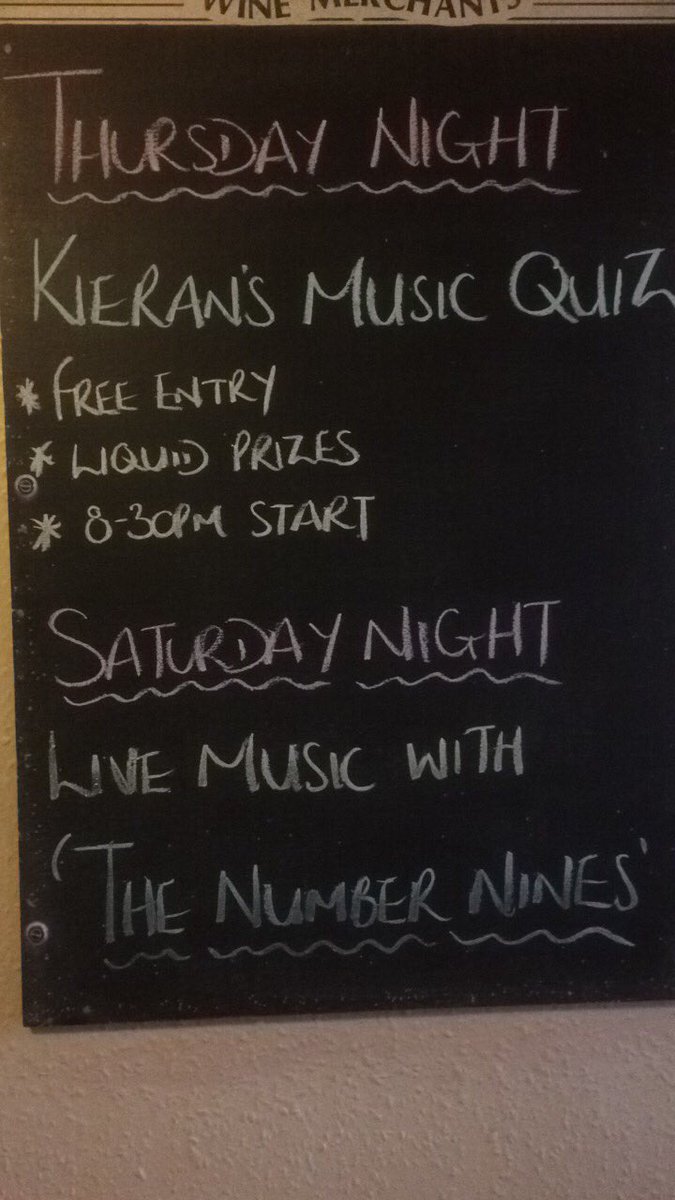 WINE MERCHANTS
THURSDAY NIGHT
KIERAN'S MUSIC QUIZ
* FREE ENTRY
* LIQUID PRIZES
* 8-30PM START
SATURDAY NIGHT
LIVE MUSIC WITH
'THE NUMBER NINES'